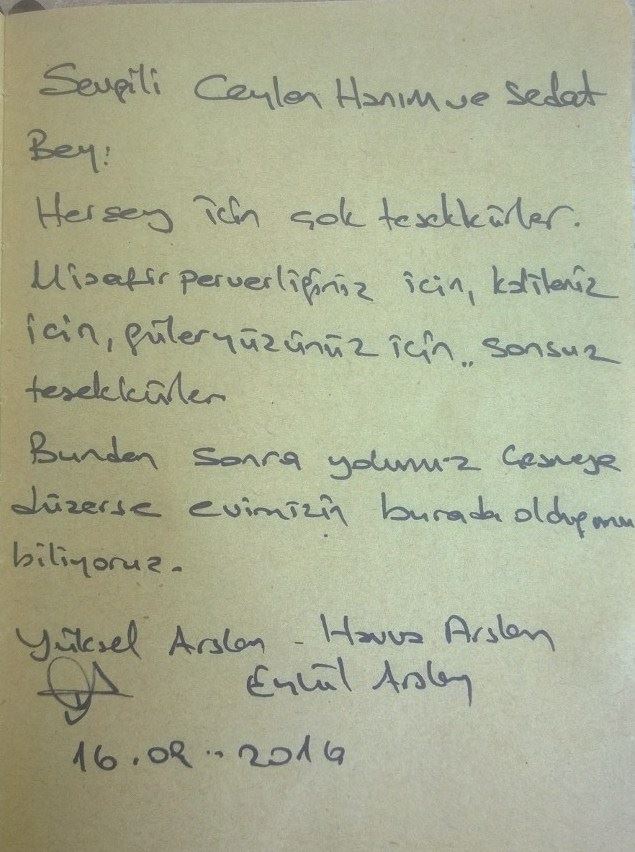 Sevgili Ceylan Hanım ve Sedat
Bey!
Herşey için çok teşekkürler.
Misafirperverliğiniz için, kaliteniz
için, güleryüzünüz için.. sonsuz
teşekkürler
Bundan sonra yolumuz Çeşmeye
düşerse evimizin burada olduğunu
biliyoruz.
Yüksel Arslan - Havva Arslan
Eylül Arslan
16.08..2016